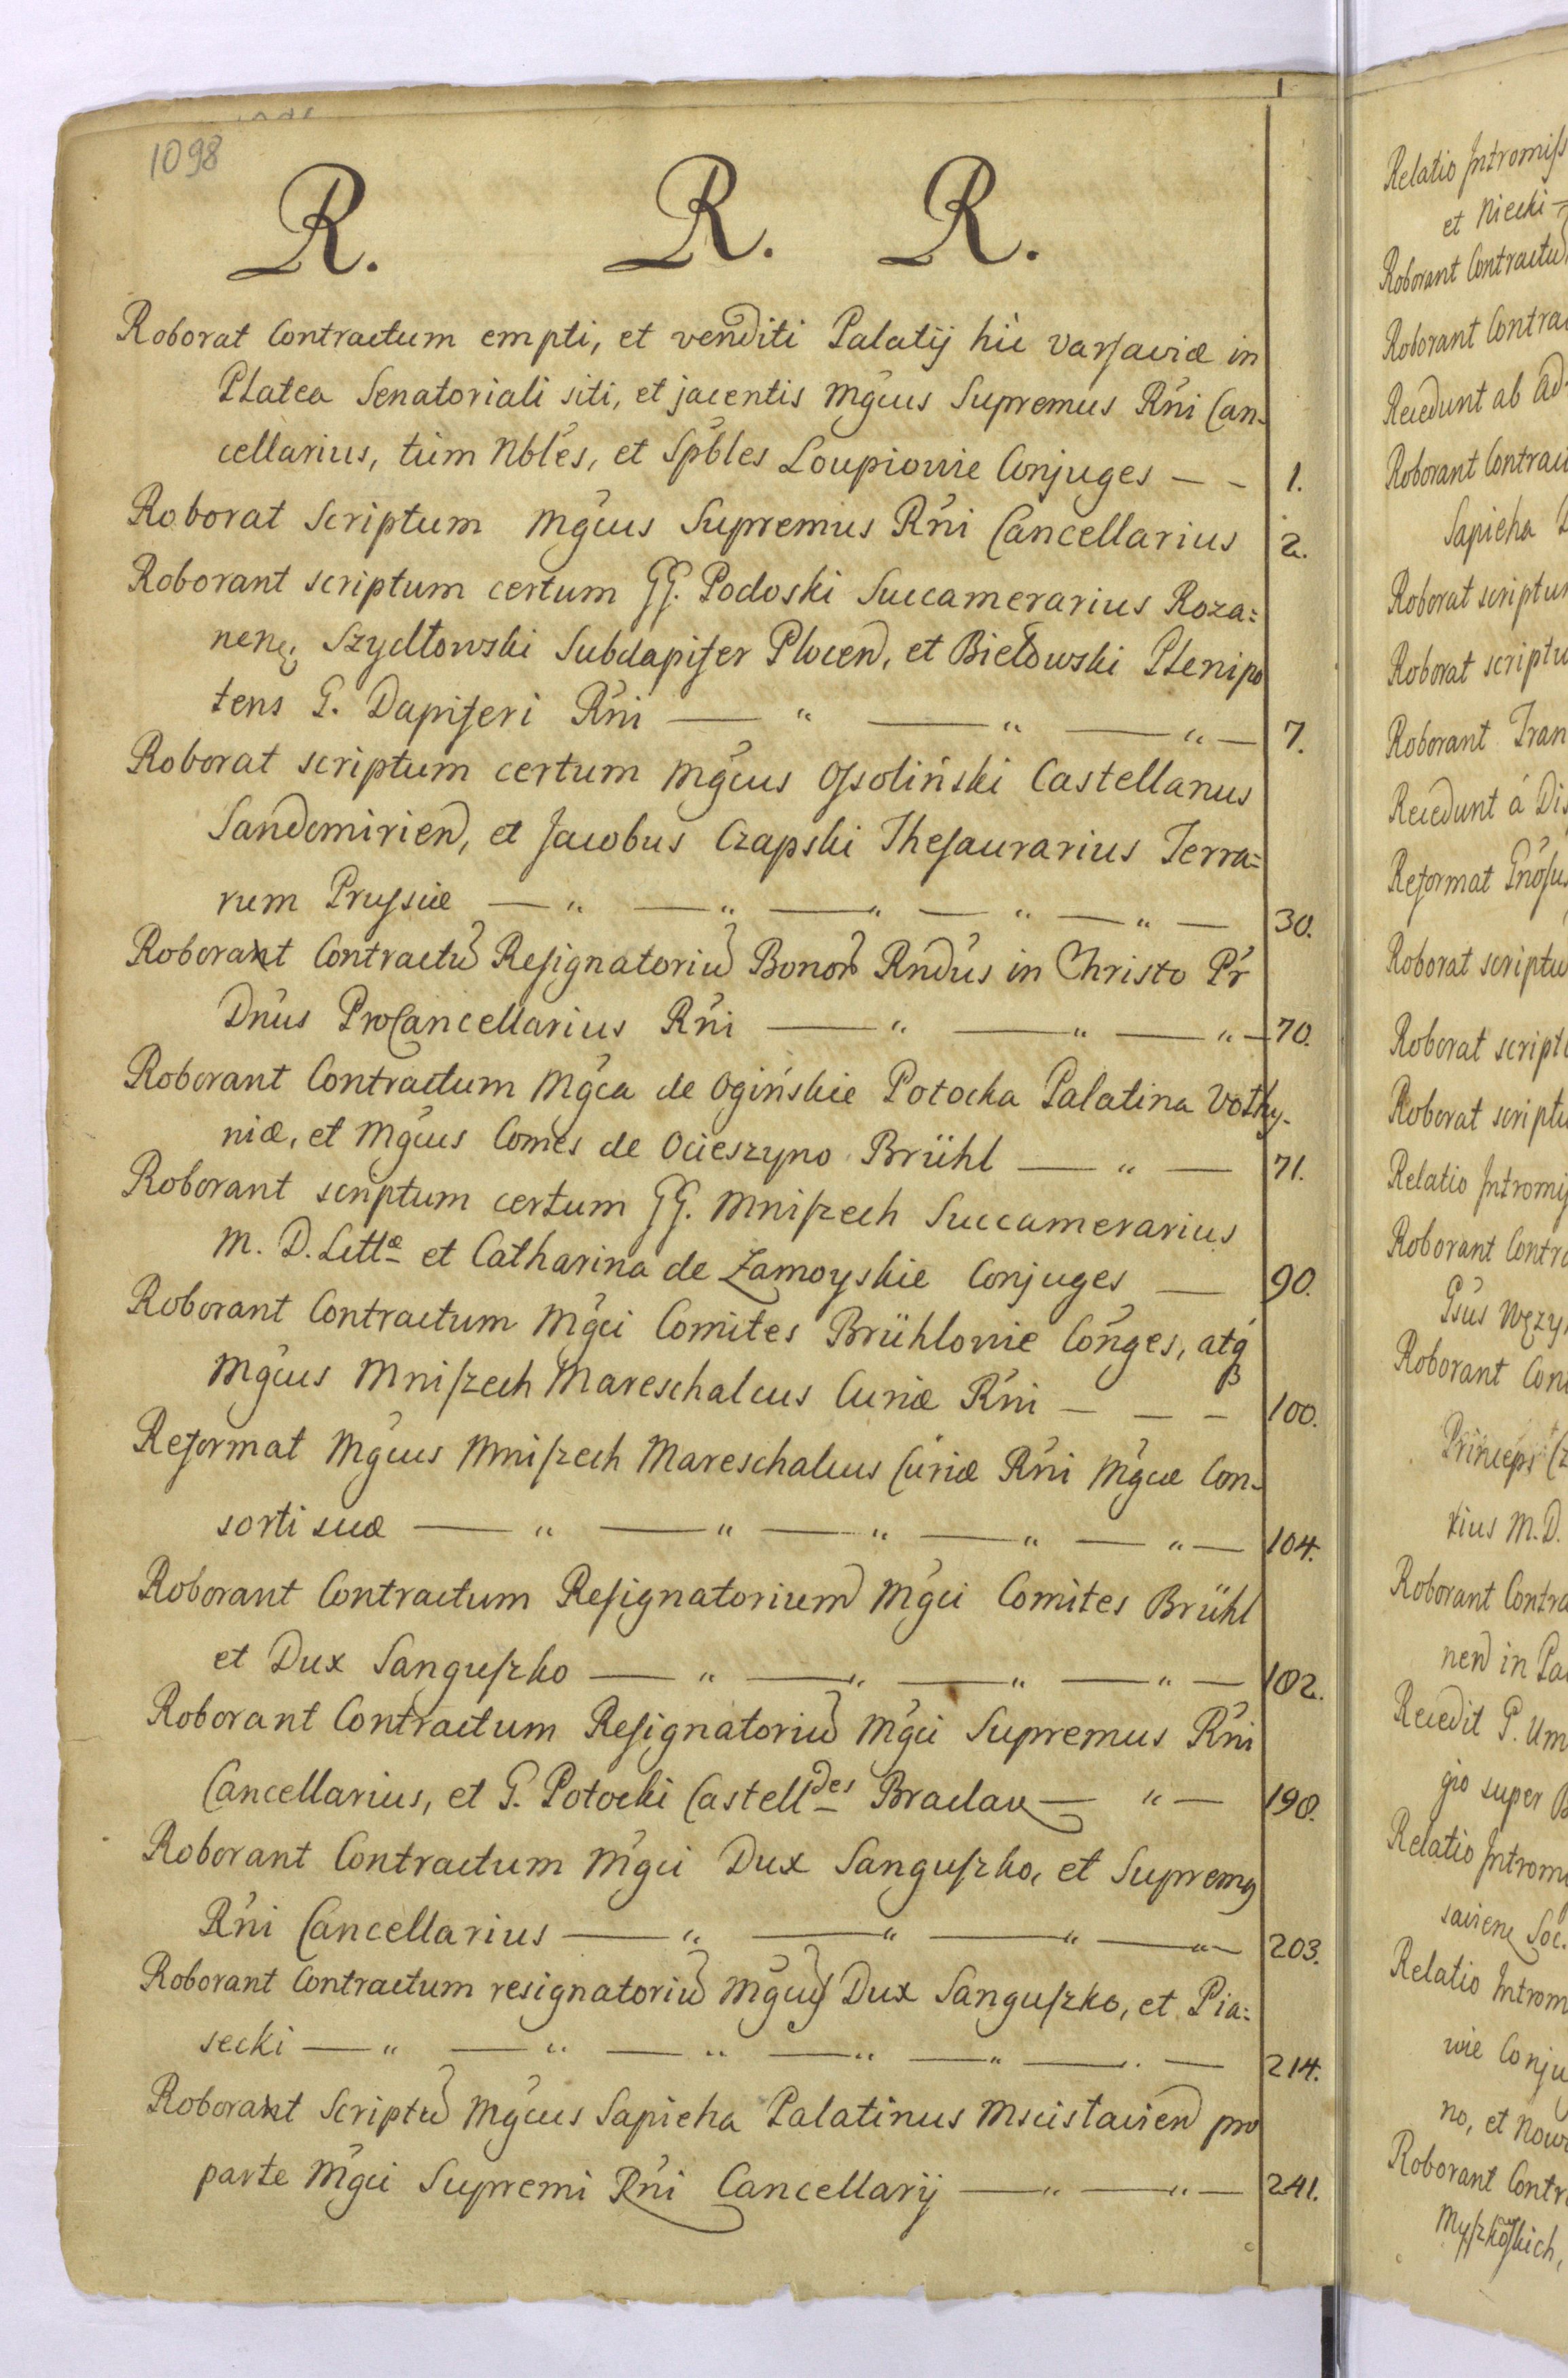 1098
R. R. R.
Roborat Contractum empti, et venditi Palatij hic Varsaviæ in
Platea Senatoriali siti, et jacentis Mgcus Supremus Rni Can-
cellarius, tum Nbles, et Spbles Loupiowie Conjuges — — 1.
Roborat Scriptum Mgcus Supremus Rni Cancellarius 2.
Roborant scriptum certum GG. Podoski Succamerarius Roza=
nen, Szydłowski Subdapifer Plocen, et Bielowski Plenipo
tens G. Dapiferi Rni — " — " — " — 7.
Roborat scriptum certum Mgcus Ossoliński Castellanus
Sandomirien, et Jacobus Czapski Thesaurarius Terra=
rum Prussiæ — " — " — " — " — " — 30.
Roborant Contractu Resignatoriu Bonor Rndus in Christo Pr
Dnus ProCancellarius Rni — " — " — " — 70.
Roborant Contractum Mgca de Ogińskie Potocka Palatina Volhy-
niæ, et Mgcus Comes de Ocieszyno Brühl — " — 71.
Roborant scriptum certum GG. Mniszech Succamerarius
M. D. Littæ et Catharina de Zamoyskie Conjuges — 90.
Roborant Contractum Mgci Comites Brühlowie Conges, atq
Mgcus Mniszech Mareschalcus Curiæ Rni — — — 100.
Reformat Mgcus Mniszech Mareschalcus Curiæ Rni Mgcæ Con-
sorti suæ — " — " — " — " — " — 104.
Roborant Contractum Resignatorium Mgci Comites Brühl
et Dux Sanguszko — " — " — " — " — 102.
Roborant Contractum Resignatoriu Mgci Supremus Rni
Cancellarius, et G. Potocki Castelldes Braclav — " — 190.
Roborant Contractum Mgci Dux Sanguszko, et Supremus
Rni Cancellarius — " — " — " — " — 203.
Roborant Contractum resignatoriu Mgcus Dux Sanguszko, et Pia=
secki — " — " — " — " — " — " — 214.
Roborant Scriptu Mgcus Sapieha Palatinus Mscislavien pro
parte Mgci Supremi Rni Cancellarij — " — " — 241.
Relatio Intromiss
et Niecki —
Roborant Contractu
Roborant Contra
Recedunt ab Ad
Roborant Contrac
Sapieha
Roborat scriptu
Roborat scriptu
Roborant Tran
Recedunt á Dis
Reformat Gnosus
Roborat scriptu
Roborat script
Roborat scriptu
Relatio Intromis
Roborant Contra
Roborant Con
Princeps
rius M.D.
Roborant Contra
nen in Pa
Recedit G. Um
gio super B
Relatio Intromi
Relatio Intromi
wie Conju
no, et Now
Roborant Contr